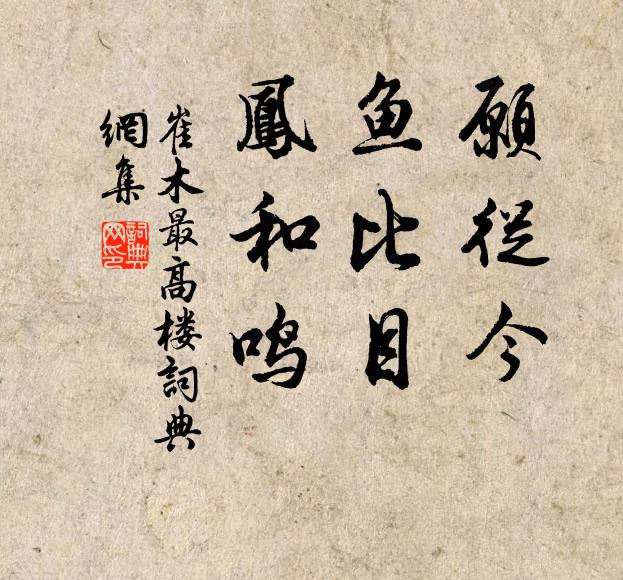 願從今
鱼比目
鳳和鸣
崔木最高楼詞典
網集
詞典
网印